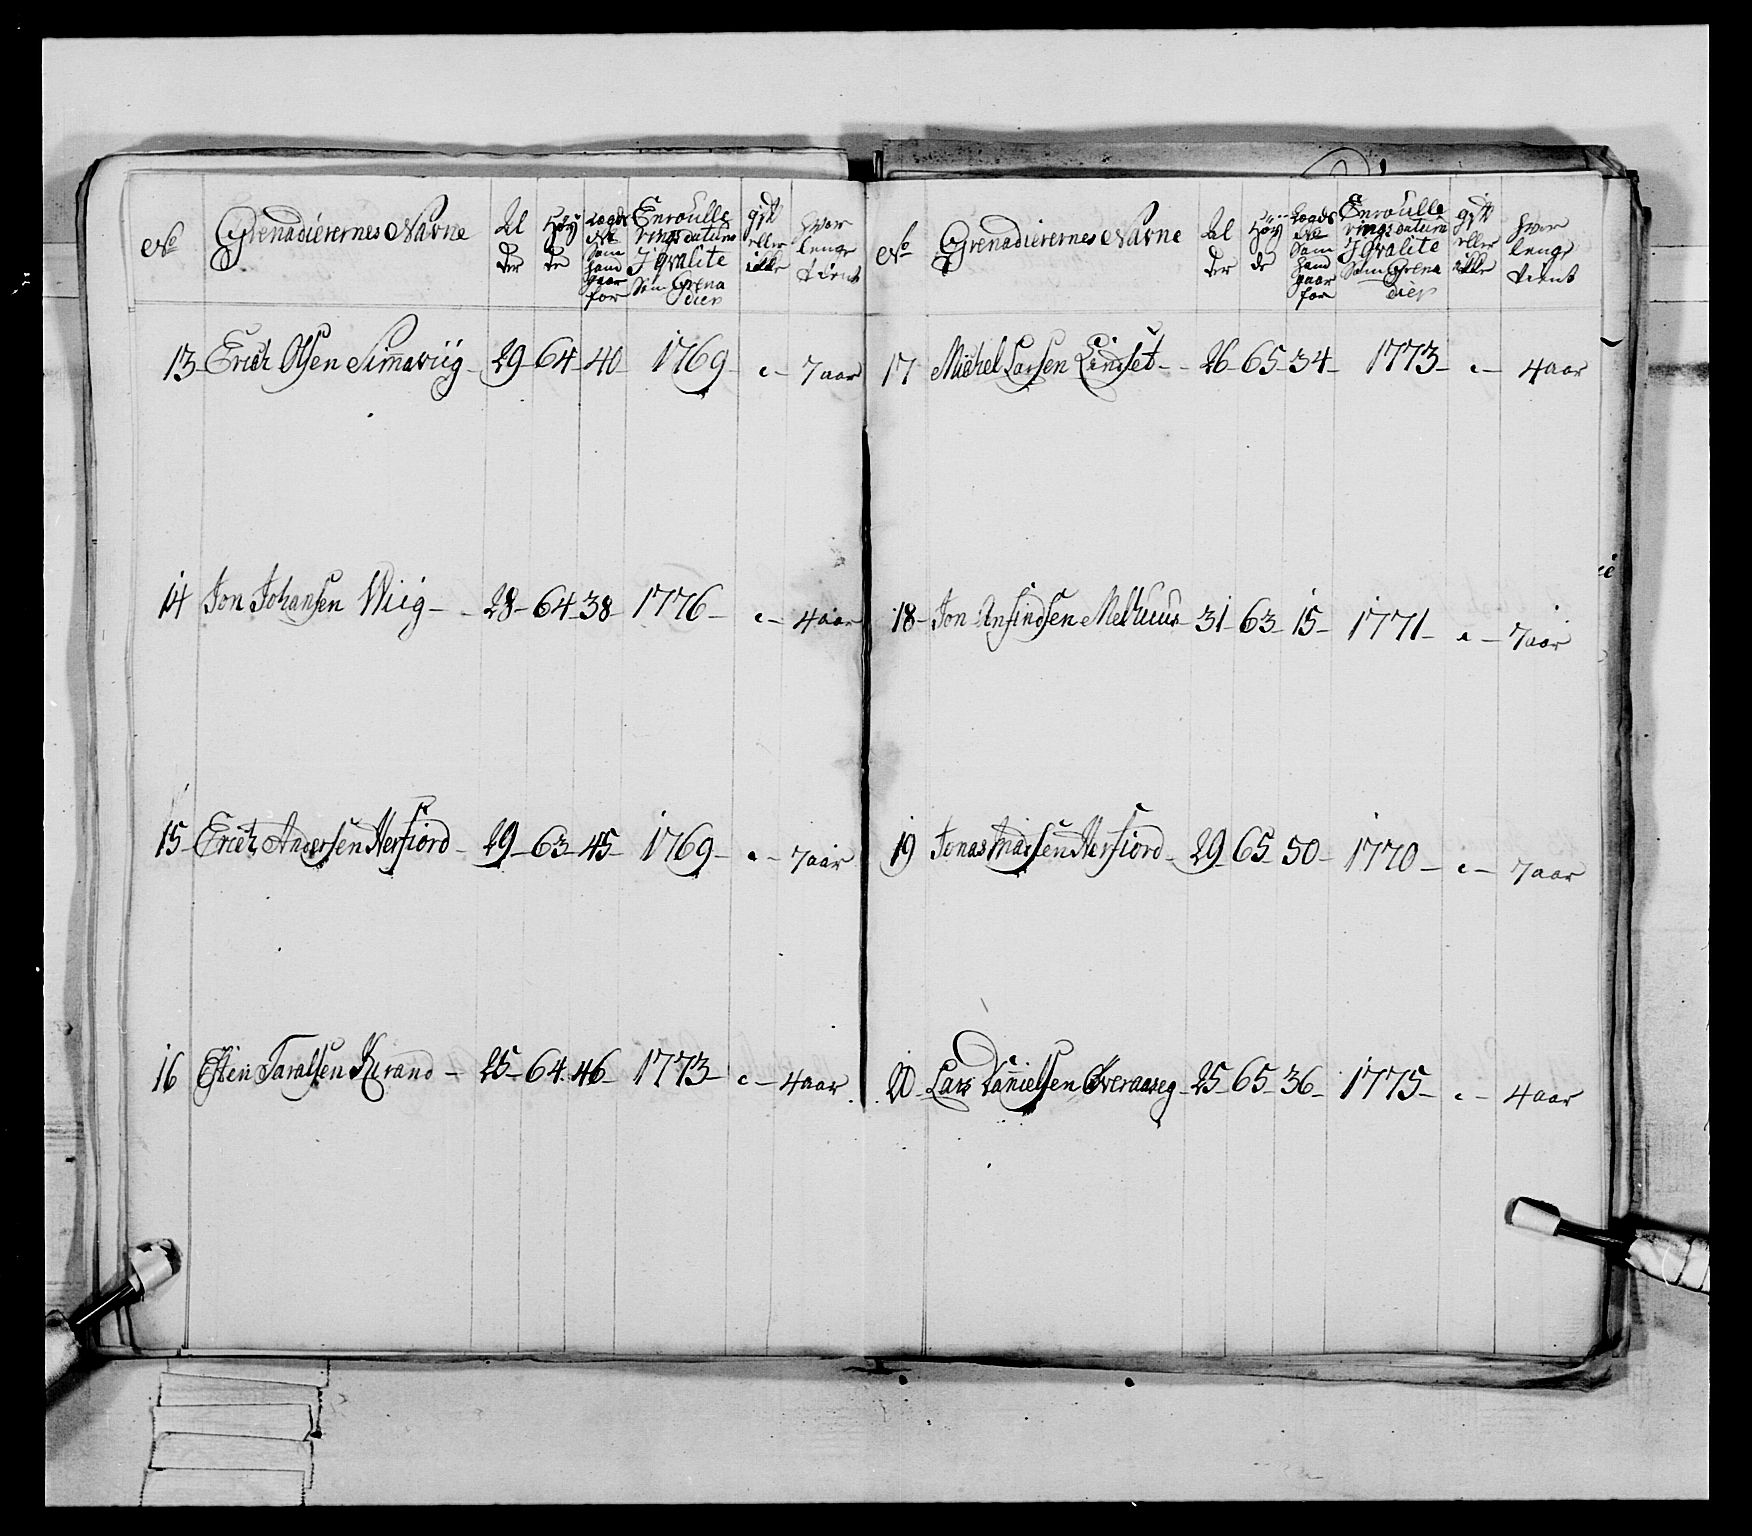 No
Grenadierernes Navne
Al
der
Høy
de
Laegds
No
Som
hand
gaar
for
Enroulle
ringsdatum
I qvalite
Som Grena
dier
gift
eller
ikke
hvor
lenge
tient
13 Erich Olsen Simaviig 29 64 40 1769 - 7 aar
14 Jon Johansen Wiig 28 64 38 1776 - 4 aar
15 Erich Andersen Herfiord 29 63 45 1769 - 7 aar
16 Esten Taralsen 25 64 46 1773 - 4 aar
No
Grenadierernes Navne
Al
der
Høy
de
Laegds
No
Som
hand
gaar
for
Enroulle
ringsdatum
I qvalite
Som Grena
dier
gift
eller
ikke
hvor
lenge
tient
17 Michel Larsen Lindset 26 65 34 1773 - 4 aar
18 Jon Ansindsen Melhuus 31 63 15 1771 - 7 aar
19 Jonas Herfiord 29 65 50 1770 - 7 aar
20 Lars Danielsen Overaaseg 25 65 36 1775 - 4 aar